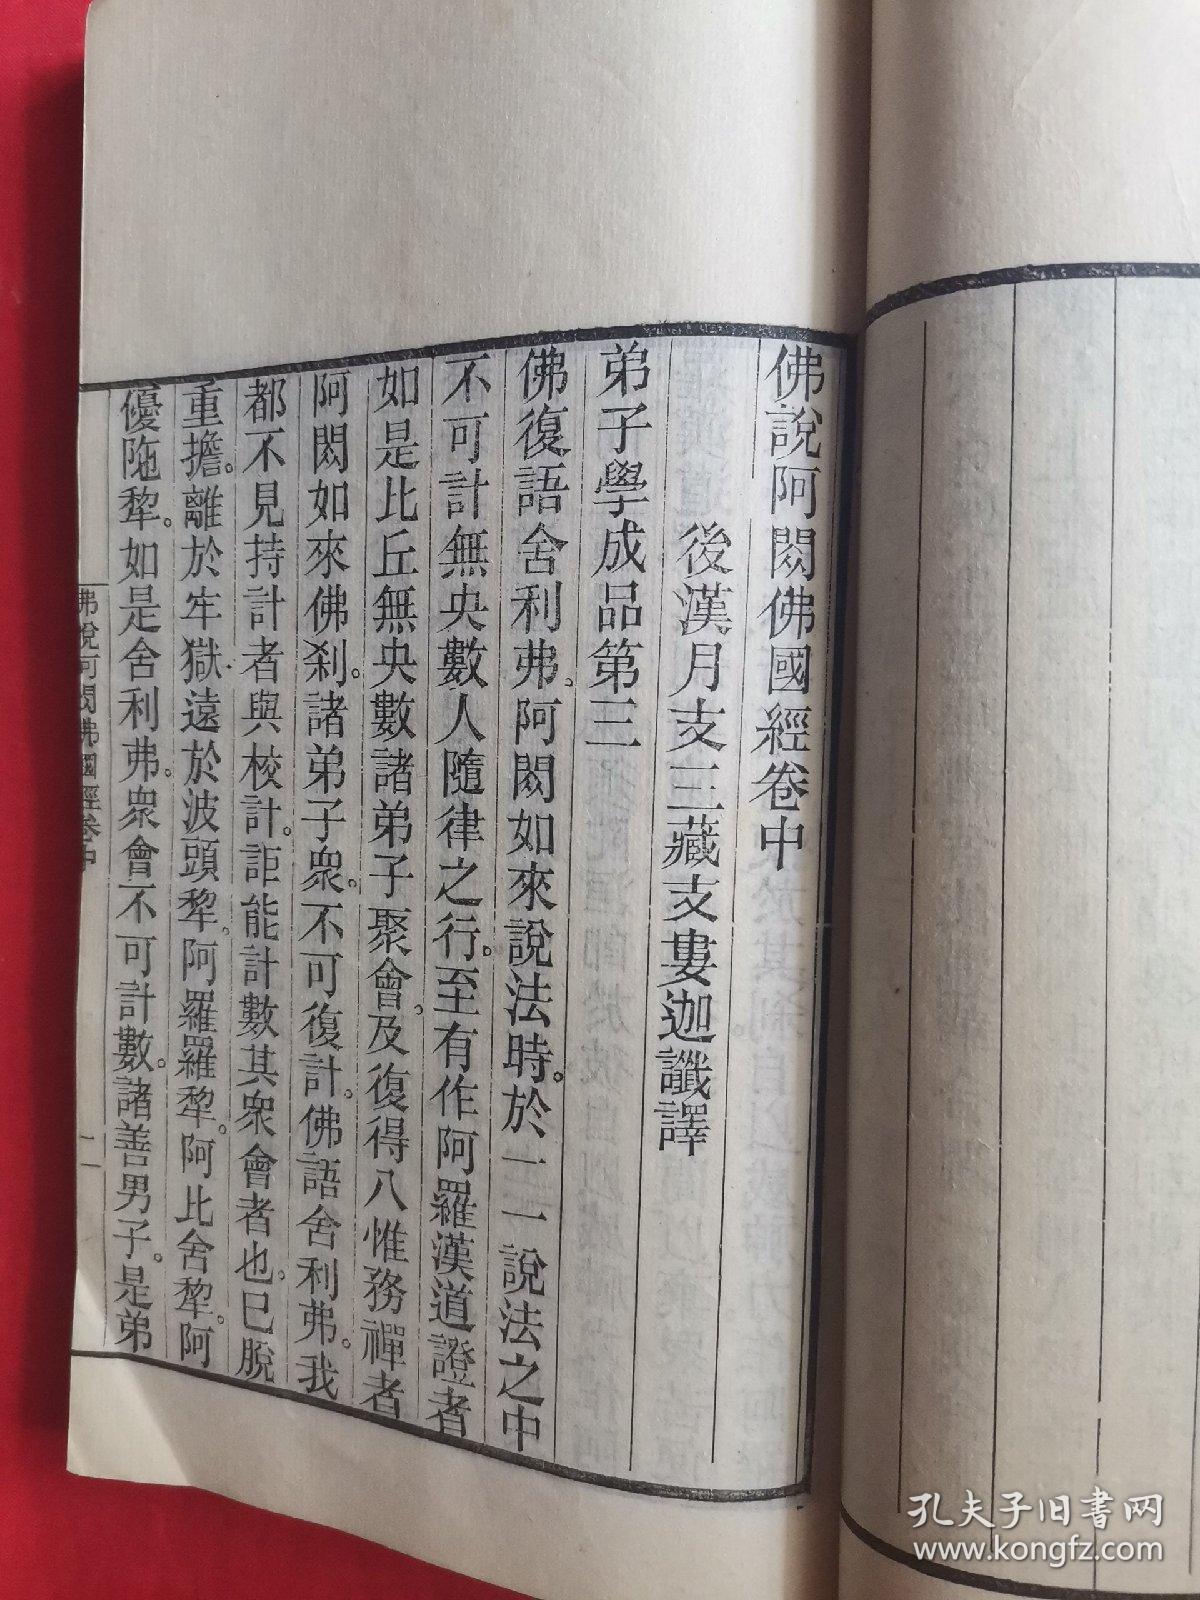 佛說阿閦佛國經卷中
後漢月支三藏支婁迦讖譯
弟子學成品第三
佛復語舍利弗。阿閦如來說法時。於一一說法之中
不可計無央數人隨律之行。至有作阿羅漢道證者
如是比丘無央數諸弟子聚會。及復得八惟務禪者
阿閦如來佛刹。諸弟子衆。不可復計。佛語舍利弗。我
都不見持計者與校計。詎能計數其衆會者也。已脫
重擔。離於牢獄。遠於波頭犂。阿羅羅犂。阿比舍犂。阿
優陁犂。如是舍利弗。衆會不可計數。諸善男子。是弟
佛說阿閦佛國經卷中
一
孔夫子旧书网
www.kongfz.com